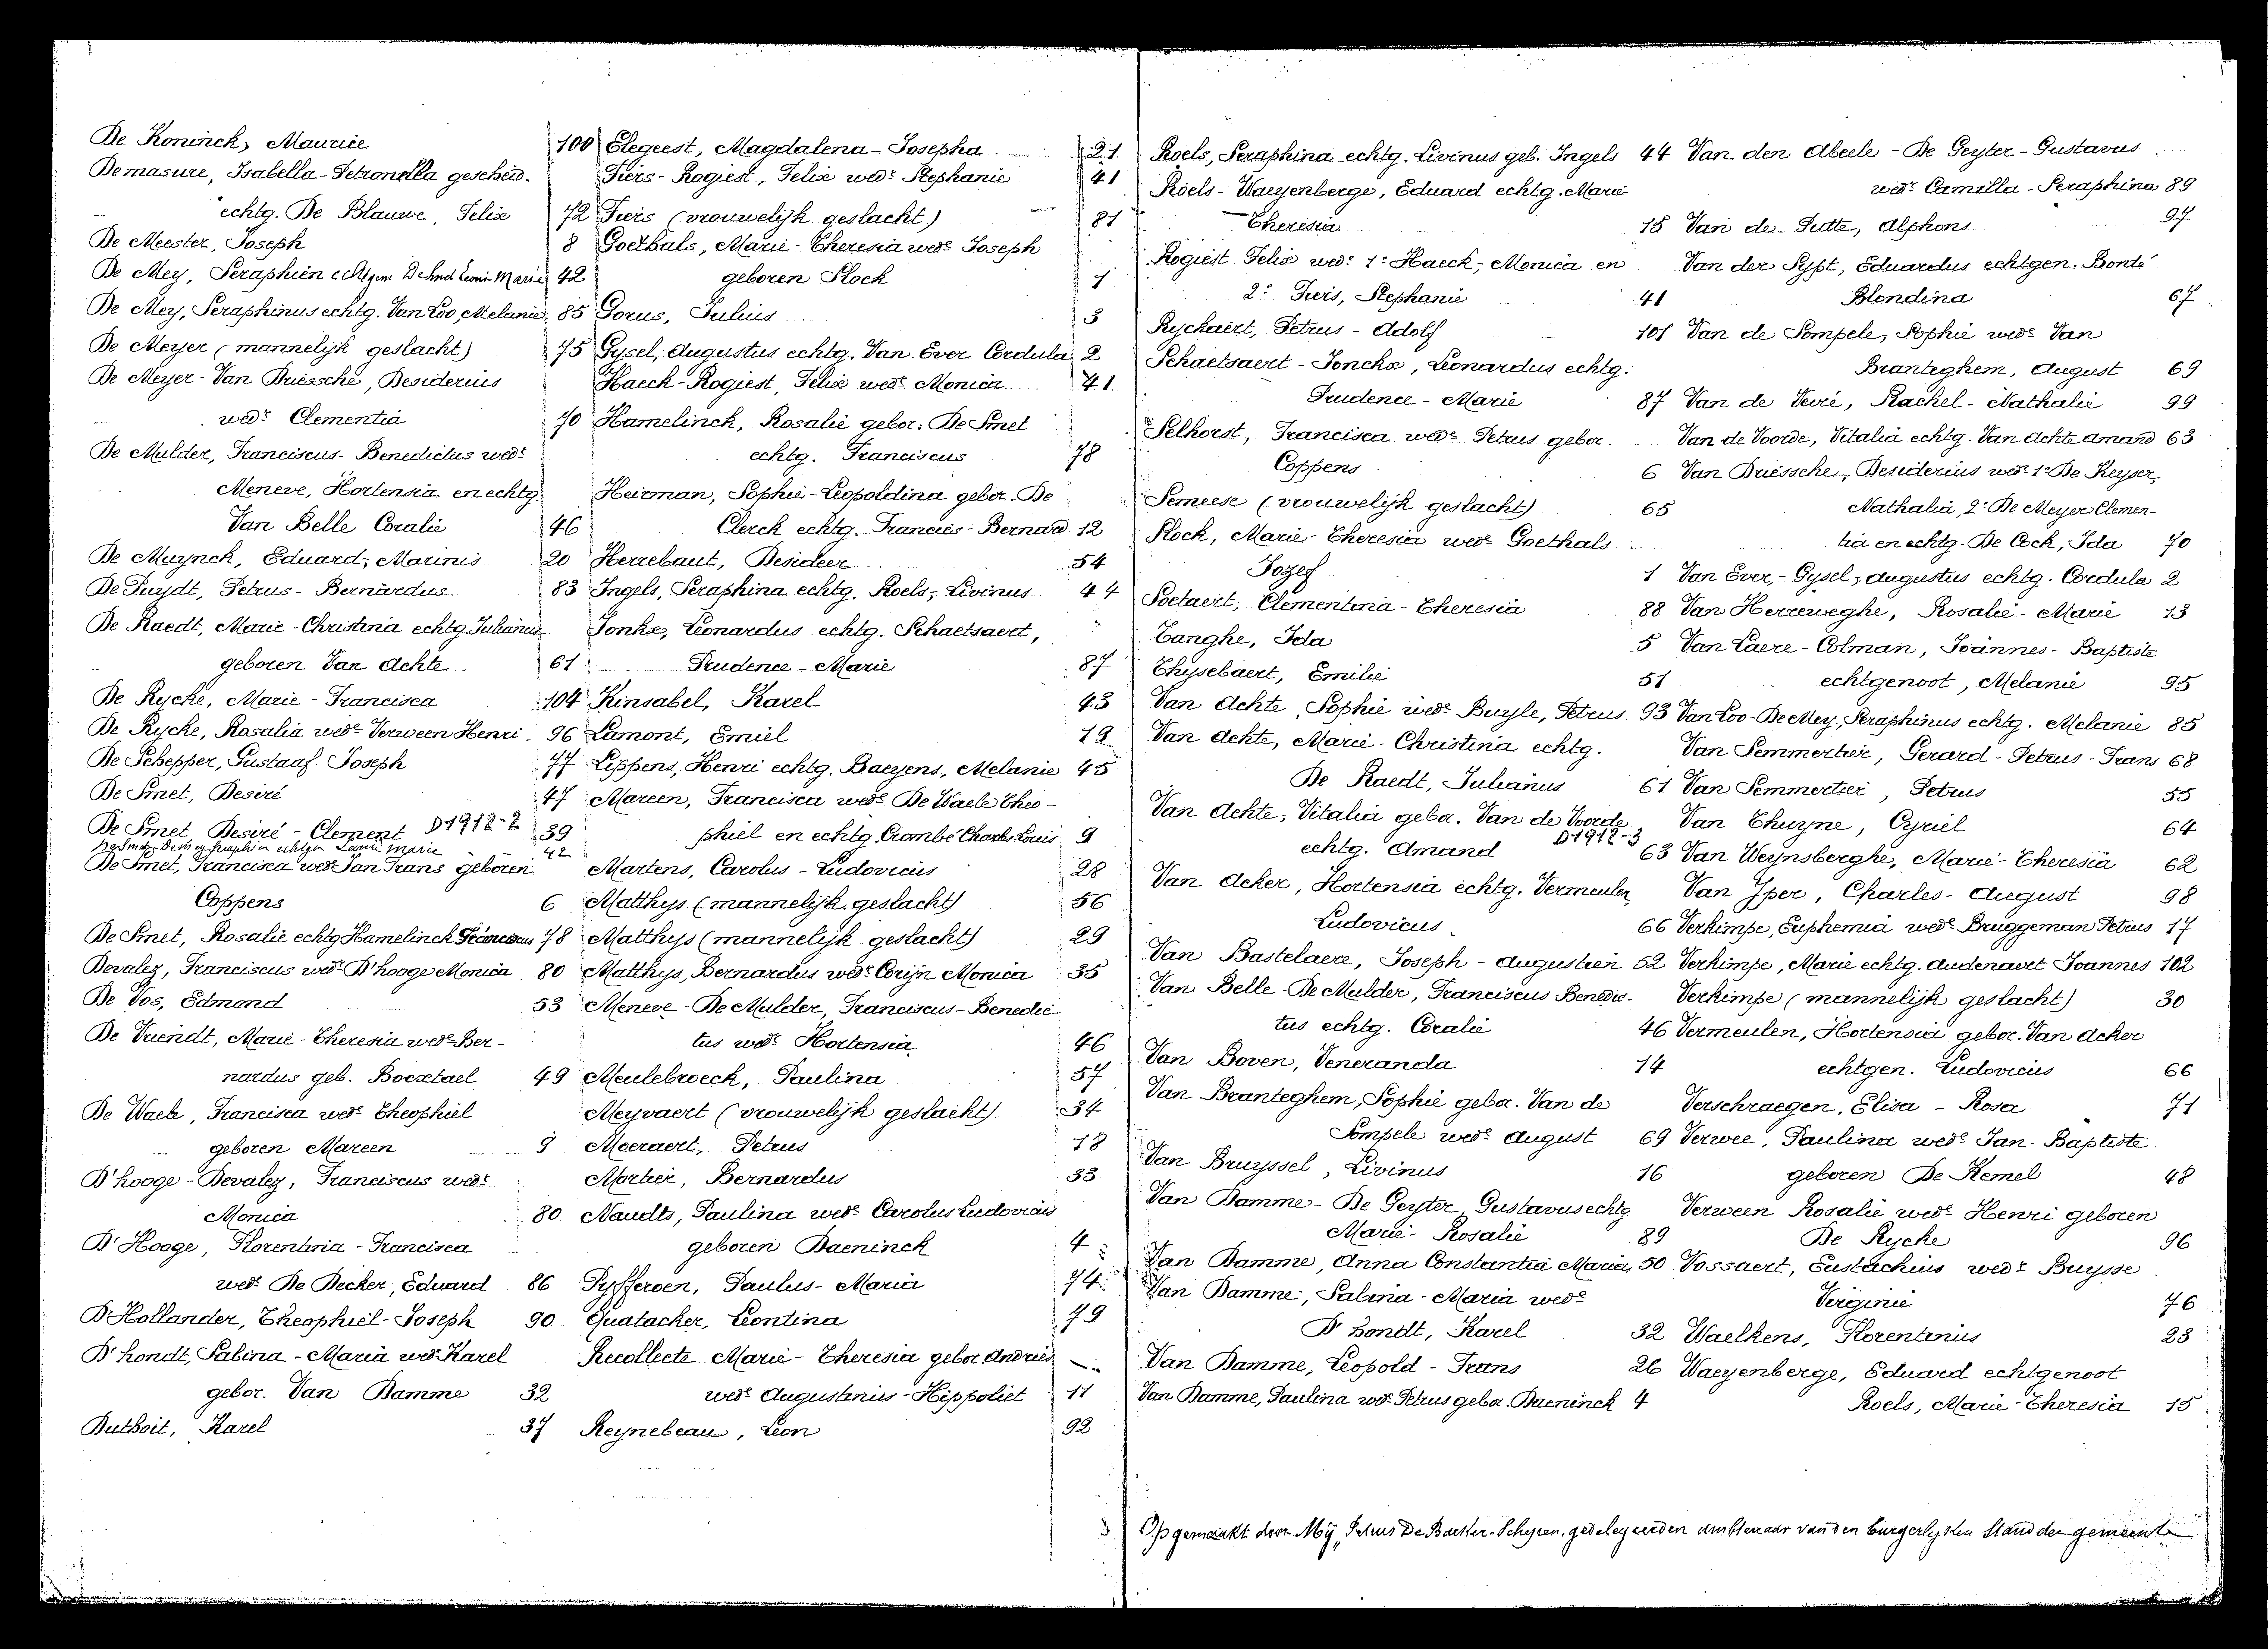 De Koninck, Maurice 100
Demasure, Isabella-Petronella gescheid.
echtg. De Blauwe, Felix 72
De Meester, Joseph 8
De Mey, Seraphien echtgen Marie 42
De Mey, Seraphinus echtg. Van Loo, Melanie 85
De Meyer (mannelijk geslacht) 75
De Meyer-Van Driessche, Desiderius
wedr Clementia 70
De Mulder, Franciscus-Benedictus wedr
Meneve, Hortensia en echtg.
Van Belle Coralie 46
De Muynck, Eduard-Marinus 20
De Puydt, Petrus-Bernardus 83
De Raedt, Marie-Christina echtg. Julianus
geboren Van Achte 61
De Rycke, Marie-Francisca 104
De Rycke, Rosalia wede Verween Henri 96
De Schepper, Gustaaf-Joseph 77
De Smet, Desiré 47
De Smet, Desiré-Clement D 1912-2 39
De Smet De Mey Seraphien echtgen Leonie Marie 42
De Smet, Francisca wede Jan Frans geboren
Coppens 6
De Smet, Rosalie echtg Hamelinck Franciscus 78
Devaley, Franciscus wedr D'hooge Monica 80
De Vos, Edmond 53
De Vriendt, Marie-Theresia wede Ber-
nardus geb. Boextael 49
De Waele, Francisca wede Theophiel
geboren Mareen 9
D'hooge-Devaley, Franciscus wedr
Monica 80
D'Hooge, Florentina-Francisca
wede De Decker, Eduard 86
D'Hollander, Theophiel-Joseph 90
D'hondt, Sabina-Maria wede Karel
gebor. Van Damme 32
Duthoit, Karel 37
Elegeest, Magdalena-Josepha 21
Fiers-Rogiest, Felix wedr Stephanie 41
Fiers (vrouwelijk geslacht) 81
Goethals, Marie-Theresia wede Joseph
geboren Slock 1
Gorus, Julius 3
Gysel, Augustus echtg. Van Ever Cordula 2
Haeck-Rogiest, Felix wedr Monica 41
Hamelinck, Rosalie gebor. De Smet
echtg. Franciscus 78
Heirman, Sophie-Leopoldina gebor. De
Clerck echtg. Francies-Bernard 12
Herrebaut, Desideer 54
Ingels, Seraphina echtg. Roels, Livinus 44
Jonkx, Leonardus echtg. Schaetsaert,
Prudence-Marie 87
Kinsabel, Karel 43
Lamont, Emiel 19
Lippens, Henri echtg. Baeyens, Melanie 45
Mareen, Francisca wede De Waele Theo-
phiel en echtg. Crombé Charles Louis 9
Martens, Carolus-Ludovicus 28
Matthys (mannelijk geslacht) 56
Matthys (mannelijk geslacht) 29
Matthys, Bernardus wedr Corijn Monica 35
Meneve-De Mulder, Franciscus-Benedic-
tus wedr Hortensia 46
Meulebroeck, Paulina 57
Meyvaert (vrouwelijk geslacht) 34
Moeraert, Petrus 18
Mortier, Bernardus 33
Naudts, Paulina wede Carolus Ludovicus
geboren Baeninck 4
Pyfferoen, Paulus-Maria 74
Quatacker, Leontina 79
Recollecte Marie-Theresia gebor. Andries
wede Augustinus-Hippoliet 11
Reynebeau, Leon 92
Roels, Seraphina echtg. Livinus geb. Ingels 44
Roels-Waeyenberge, Eduard echtg. Marie
Theresia 15
Rogiest Felix wedr 1° Haeck, Monica en
2° Fiers, Stephanie 41
Ryckaert, Petrus-Adolf 101
Schaetsaert-Jonckx, Leonardus echtg.
Prudence-Marie 87
Selhorst, Francisca wede Petrus gebor.
Coppens 6
Semeese (vrouwelijk geslacht) 65
Slock, Marie-Theresia wede Goethals
Jozef 1
Soetaert, Clementina-Theresia 88
Tanghe, Ida 5
Thysebaert, Emilie 51
Van Achte, Sophie wede Buyle, Petrus 93
Van Achte, Marie-Christina echtg.
De Raedt, Julianus 61
Van Achte, Vitalia gebor. Van de Voorde
echtg. Amand D 1912-3 63
Van Acker, Hortensia echtg. Vermeulen
Ludovicus 66
Van Bastelaere, Joseph-Augustien 52
Van Belle-De Mulder, Franciscus-Benedic-
tus echtg. Coralie 46
Van Boven, Veneranda 14
Van Branteghem, Sophie gebor. Van de
Pompele wede August 69
Van Bruyssel, Livinus 16
Van Damme-De Geyter, Gustavus echtg.
Marie-Rosalie 89
Van Damme, Anna Constantia Maria 50
Van Damme, Sabina-Maria wede
D'hondt, Karel 32
Van Damme, Leopold-Frans 26
Van Damme, Paulina wede Petrus gebor. Baeninck 4
Van den Abeele-De Geyter-Gustavus
wedr Camilla-Seraphina 89
Van de Putte, Alphons 97
Van der Sypt, Eduardus echtgen. Bonté
Blondina 67
Van de Pompele, Sophie wede Van
Branteghem, August 69
Van de Veire, Rachel-Nathalie 99
Van de Voorde, Vitalia echtg. Van Achte Amand 63
Van Driessche, Desiderius wedr 1° De Keyser,
Nathalia, 2° De Meyer Clemen-
tia en echtg. De Cock, Ida 70
Van Ever-Gysel, Augustus echtg. Cordula 2
Van Herreweghe, Rosalie-Marie 13
Van Laere-Colman, Joannes-Baptiste
echtgenoot, Melanie 95
Van Loo-De Mey, Seraphinus echtg. Melanie 85
Van Semmertier, Gerard-Petrus-Frans 68
Van Semmertier, Petrus 55
Van Thuyne, Cyriel 64
Van Weynsberghe, Marie-Theresia 62
Van Yper, Charles-August 98
Verkimpe, Euphemia wede Bruggeman Petrus 17
Verkimpe, Marie echtg. Audenaert Joannes 102
Verkimpe (mannelijk geslacht) 30
Vermeulen, Hortensia gebor. Van Acker
echtgen. Ludovicus 66
Verschraegen, Elisa-Rosa 71
Verwee, Paulina wede Jan-Baptiste
geboren De Kemel 48
Verween Rosalie wede Henri geboren
De Rycke 96
Vossaert, Eustachius wedr Buysse
Virginie 76
Waelkens, Florentinus 23
Waeyenberge, Eduard echtgenoot
Roels, Marie-Theresia 15
Opgemaakt door Mij, Petrus De Backer-Scheyren, gedelegeerden ambtenaar van den burgerlyken Stand der gemeente